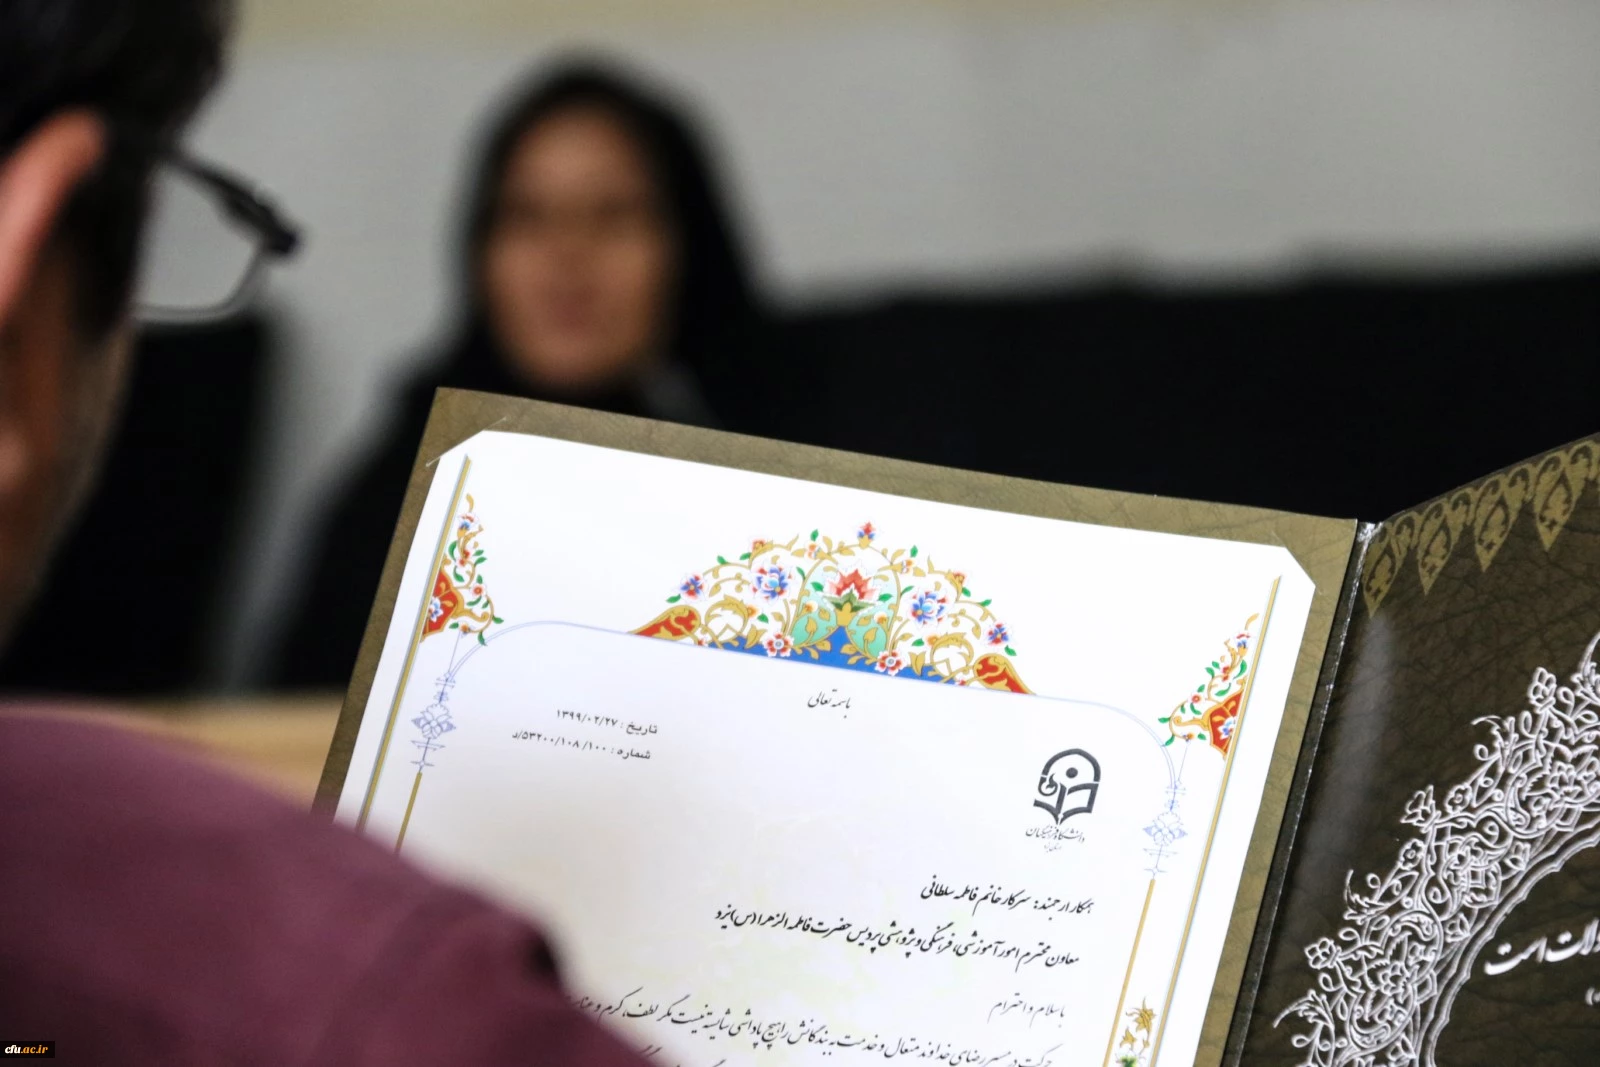 باسمه تعالی
تاریخ : ۱۳۹۹/۰۲/۲۷
شماره : ۵۳۲۰۰/۱۰۸/۱۰۰/د
دانشگاه فرهنگیان
همکار ارجمند: سرکار خانم فاطمه سلطانی
معاون محترم امور آموزشی، فرهنگی و پژوهشی پردیس حضرت فاطمه الزهرا (س) یزد
با سلام و احترام
حرکت در مسیر رضای خداوند متعال و خدمت به بندگانش را هیچ پاداشی شایسته نیست مگر لطف، کرم و
است
cfu.ac.ir